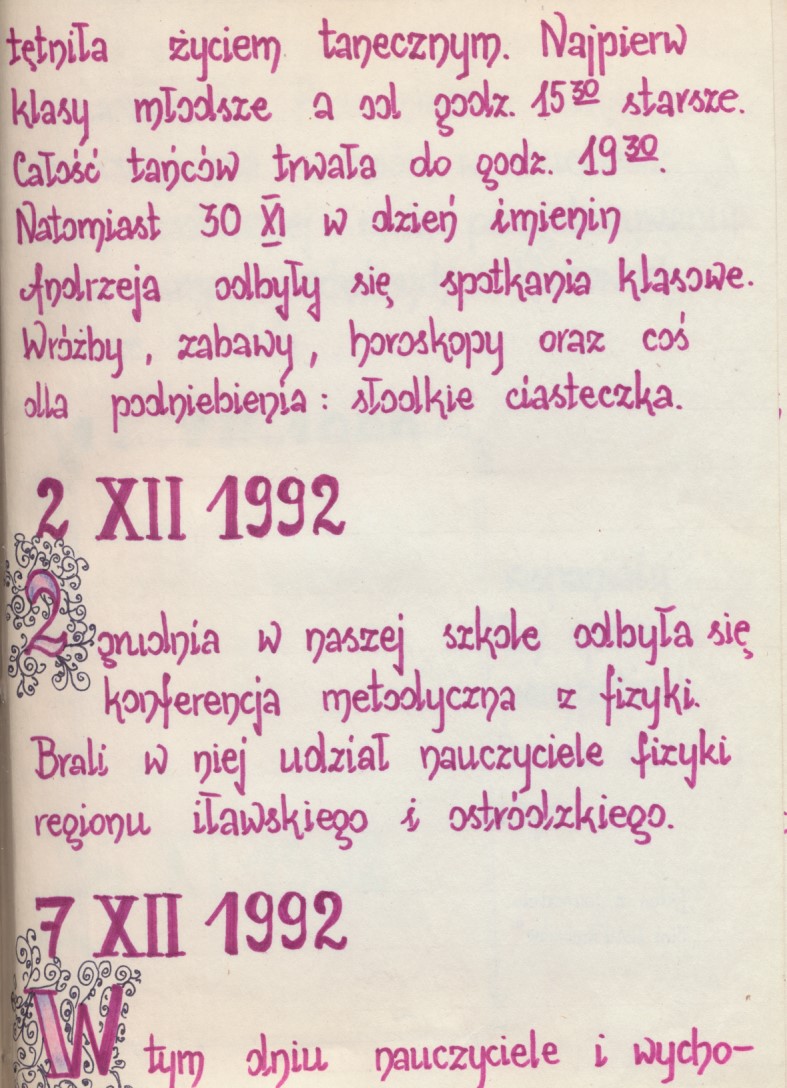 tętniła życiem tanecznym. Najpierw
klasy młodsze a od godz. 15³⁰ starsze.
Całość tańców trwała do godz. 19³⁰.
Natomiast 30 XI w dzień imienin
Andrzeja odbyły się spotkania klasowe.
Wróżby, zabawy, horoskopy oraz coś
dla podniebienia: słodkie ciasteczka.
2 XII 1992
2 grudnia w naszej szkole odbyła się
konferencja metodyczna z fizyki.
Brali w niej udział nauczyciele fizyki
regionu iławskiego i ostródzkiego.
7 XII 1992
W tym dniu nauczyciele i wycho-